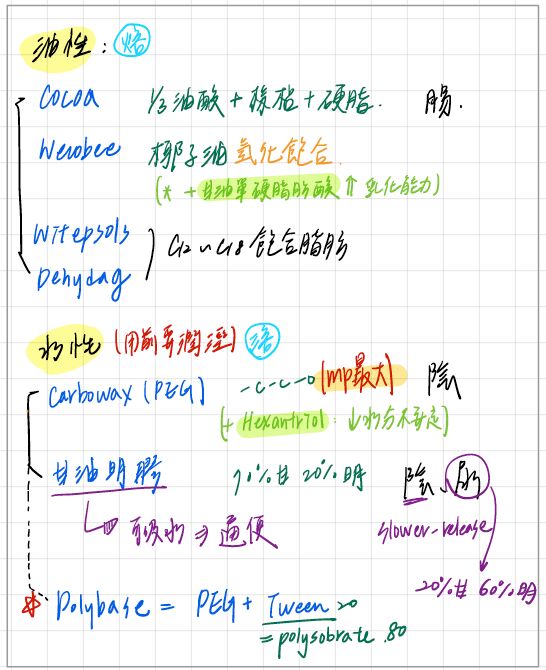 油性：熔
Cocoa 1/3 油酸 + 棕梠 + 硬脂. 腸.
Wecobee 椰子油 氫化飽合.
(* + 甘油單硬脂肪酸 ↑ 乳化能力)
Witepsols
Dehydag C12~C18 飽合脂肪
水性 (用前要潤溼) 溶
Carbowax (PEG) -C-C-O (mp最大) 陰
(+ Hexantriol : ↓水分不要走)
甘油明膠 70%甘 20%明 陰、尿
吸水 ⇒ 通便 slower-release
20%甘 60%明
* Polybase = PEG + Tween 20
= polysobrate .80